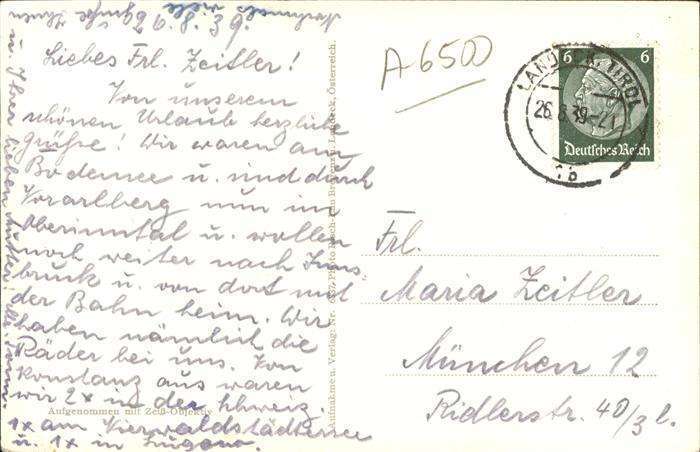 26.8.39
Liebes Frl. Zeitler!
Von unserem
schönen Urlaub herzliche
Grüße! Wir waren am
Bodensee u. sind durch
Vorarlberg nun im
Oberinntal u. wollen
noch weiter nach Inns-
bruck u. von dort mit
der Bahn heim. Wir
haben nämlich die
Räder bei uns. Von
Konstanz aus waren
wir 2x in der Schweiz.
1x am Vierwaldstädtersee
u. 1x in Lugano.
Nochmals viele Grüße Ihnen
u. Ihrer lieben Mutter
Aufgenommen mit Zeiß-Objektiv
Aufnahme u. Verlag: Landeck, Österreich.
A 6500
LANDECK, TIROL
26.8.39
1b
6 6
Deutsches Reich
Frl.
Maria Zeitler
München 12
Ridlerstr. 40/3 l.